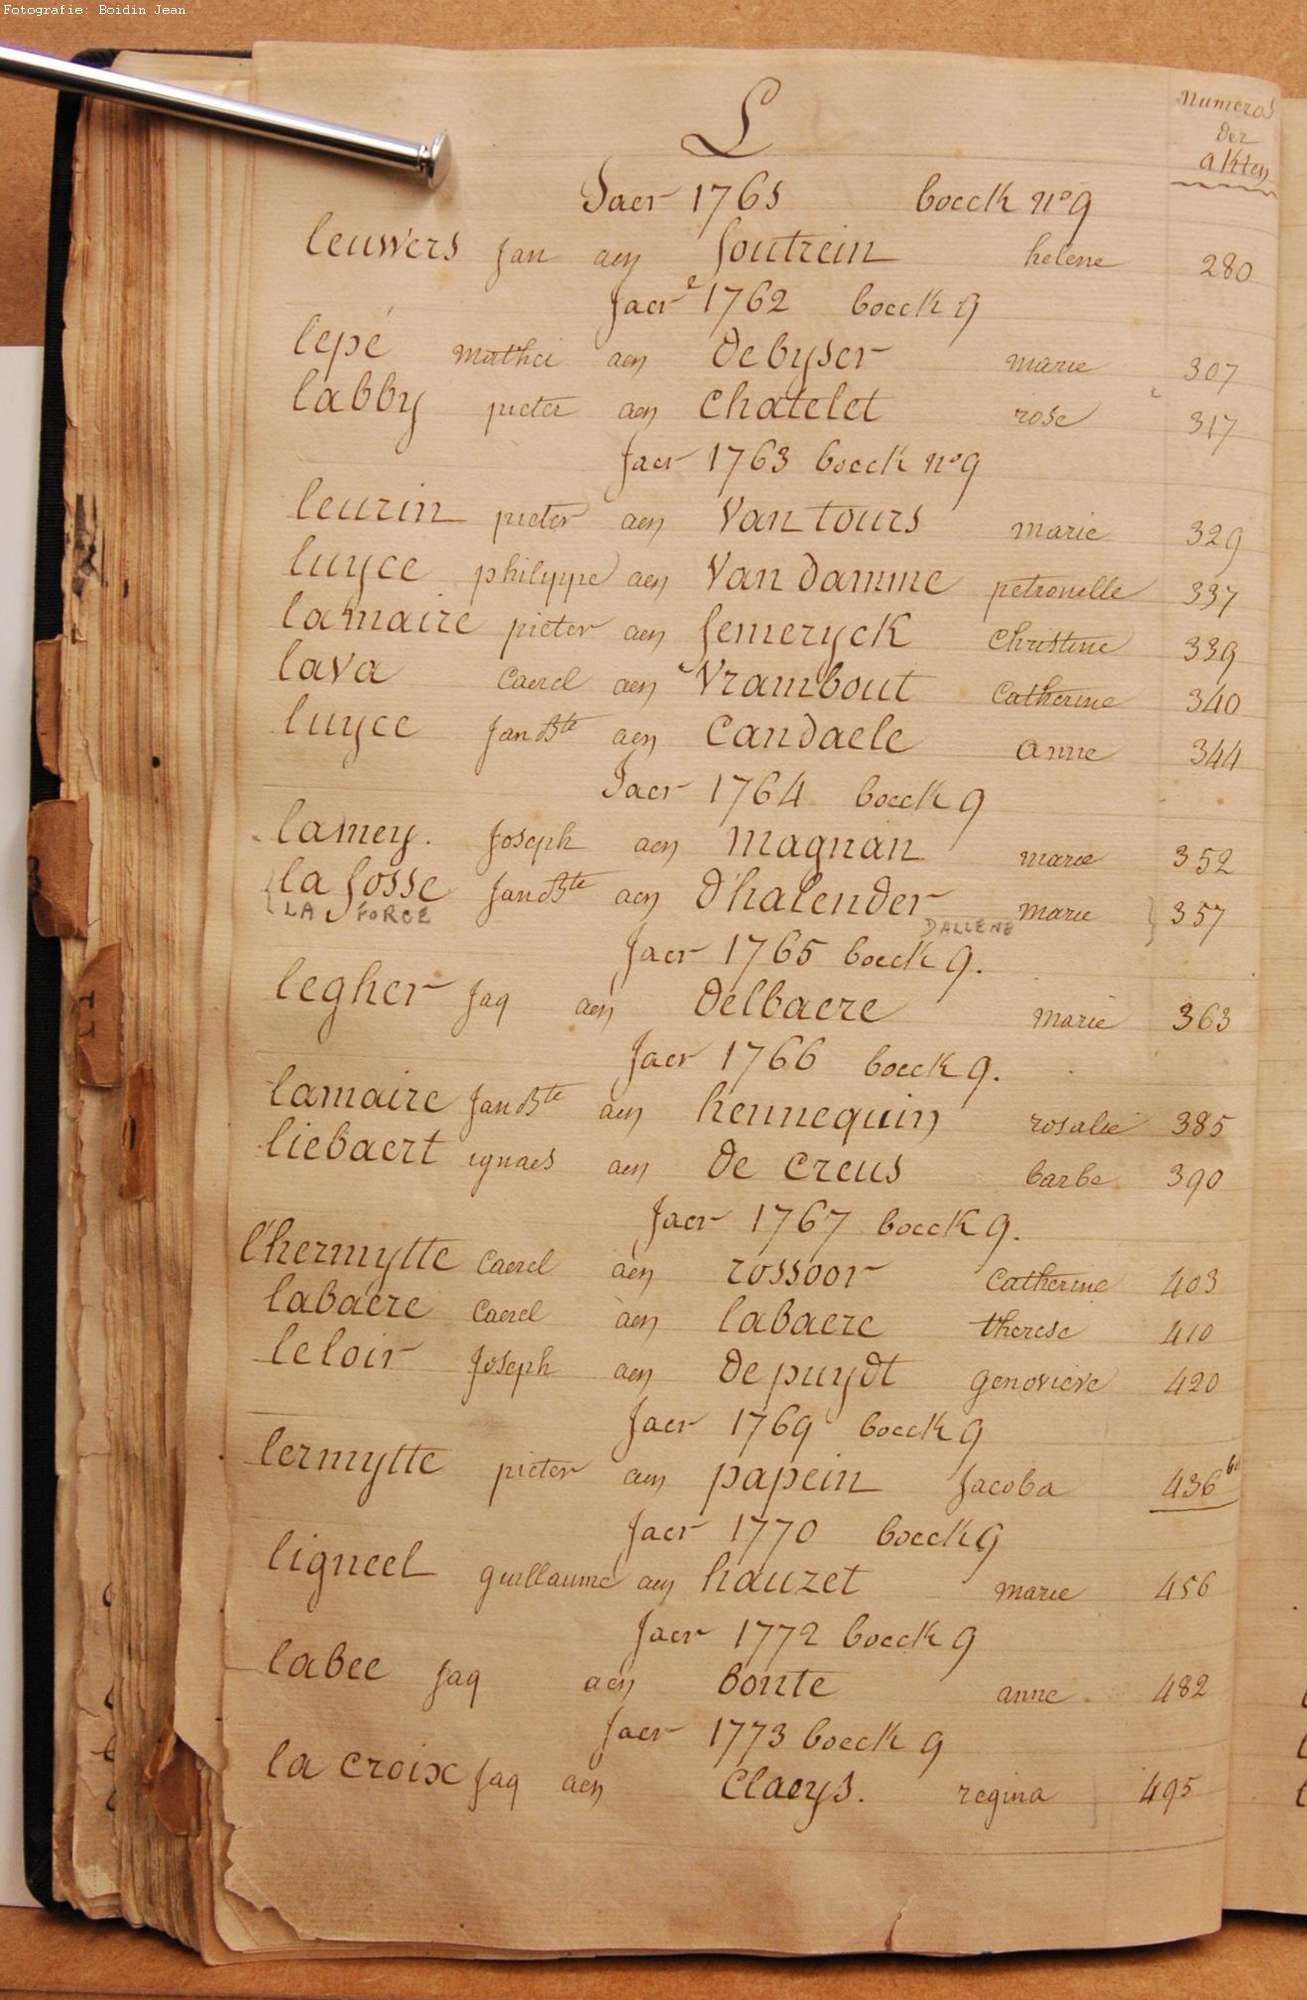 Fotografie: Boidin Jean
L
numeros
der
akten
Jaer 1765 boeck n° 9
leuwers jan aen soutrein helene 280
Jaer 1762 boeck 9
lepé mathei aen debyser marie 307
labby pieter aen chatelet rose 317
Jaer 1763 boeck n° 9
leurin pieter aen van tours marie 329
luyce philippe aen van damme petronelle 337
lamaire pieter aen semeryck christine 339
lava caerel aen vrambout catherine 340
luyce jan Bte aen candaele anne 344
Jaer 1764 boeck 9
lamey. joseph aen magnan marie 352
la fosse jan Bte aen d'halender marie 357
LA FORCE DALLENE
Jaer 1765 boeck 9.
legher jaq aen delbaere marie 363
Jaer 1766 boeck 9.
lamaire jan Bte aen hennequin rosalie 385
liebaert ignaes aen de creus barbe 390
Jaer 1767 boeck 9.
l'hermytte caerel aen rossoor catherine 403
labaere caerel aen labaere therese 410
leloir joseph aen depuydt genovieve 420
Jaer 1769 boeck 9
lermytte pieter aen papein jacoba 436
Jaer 1770 boeck 9
ligneel guillaume aen hauzet marie 456
Jaer 1772 boeck 9
labee jaq aen bonte anne 482
Jaer 1773 boeck 9
la croix jaq aen claeys. regina 495